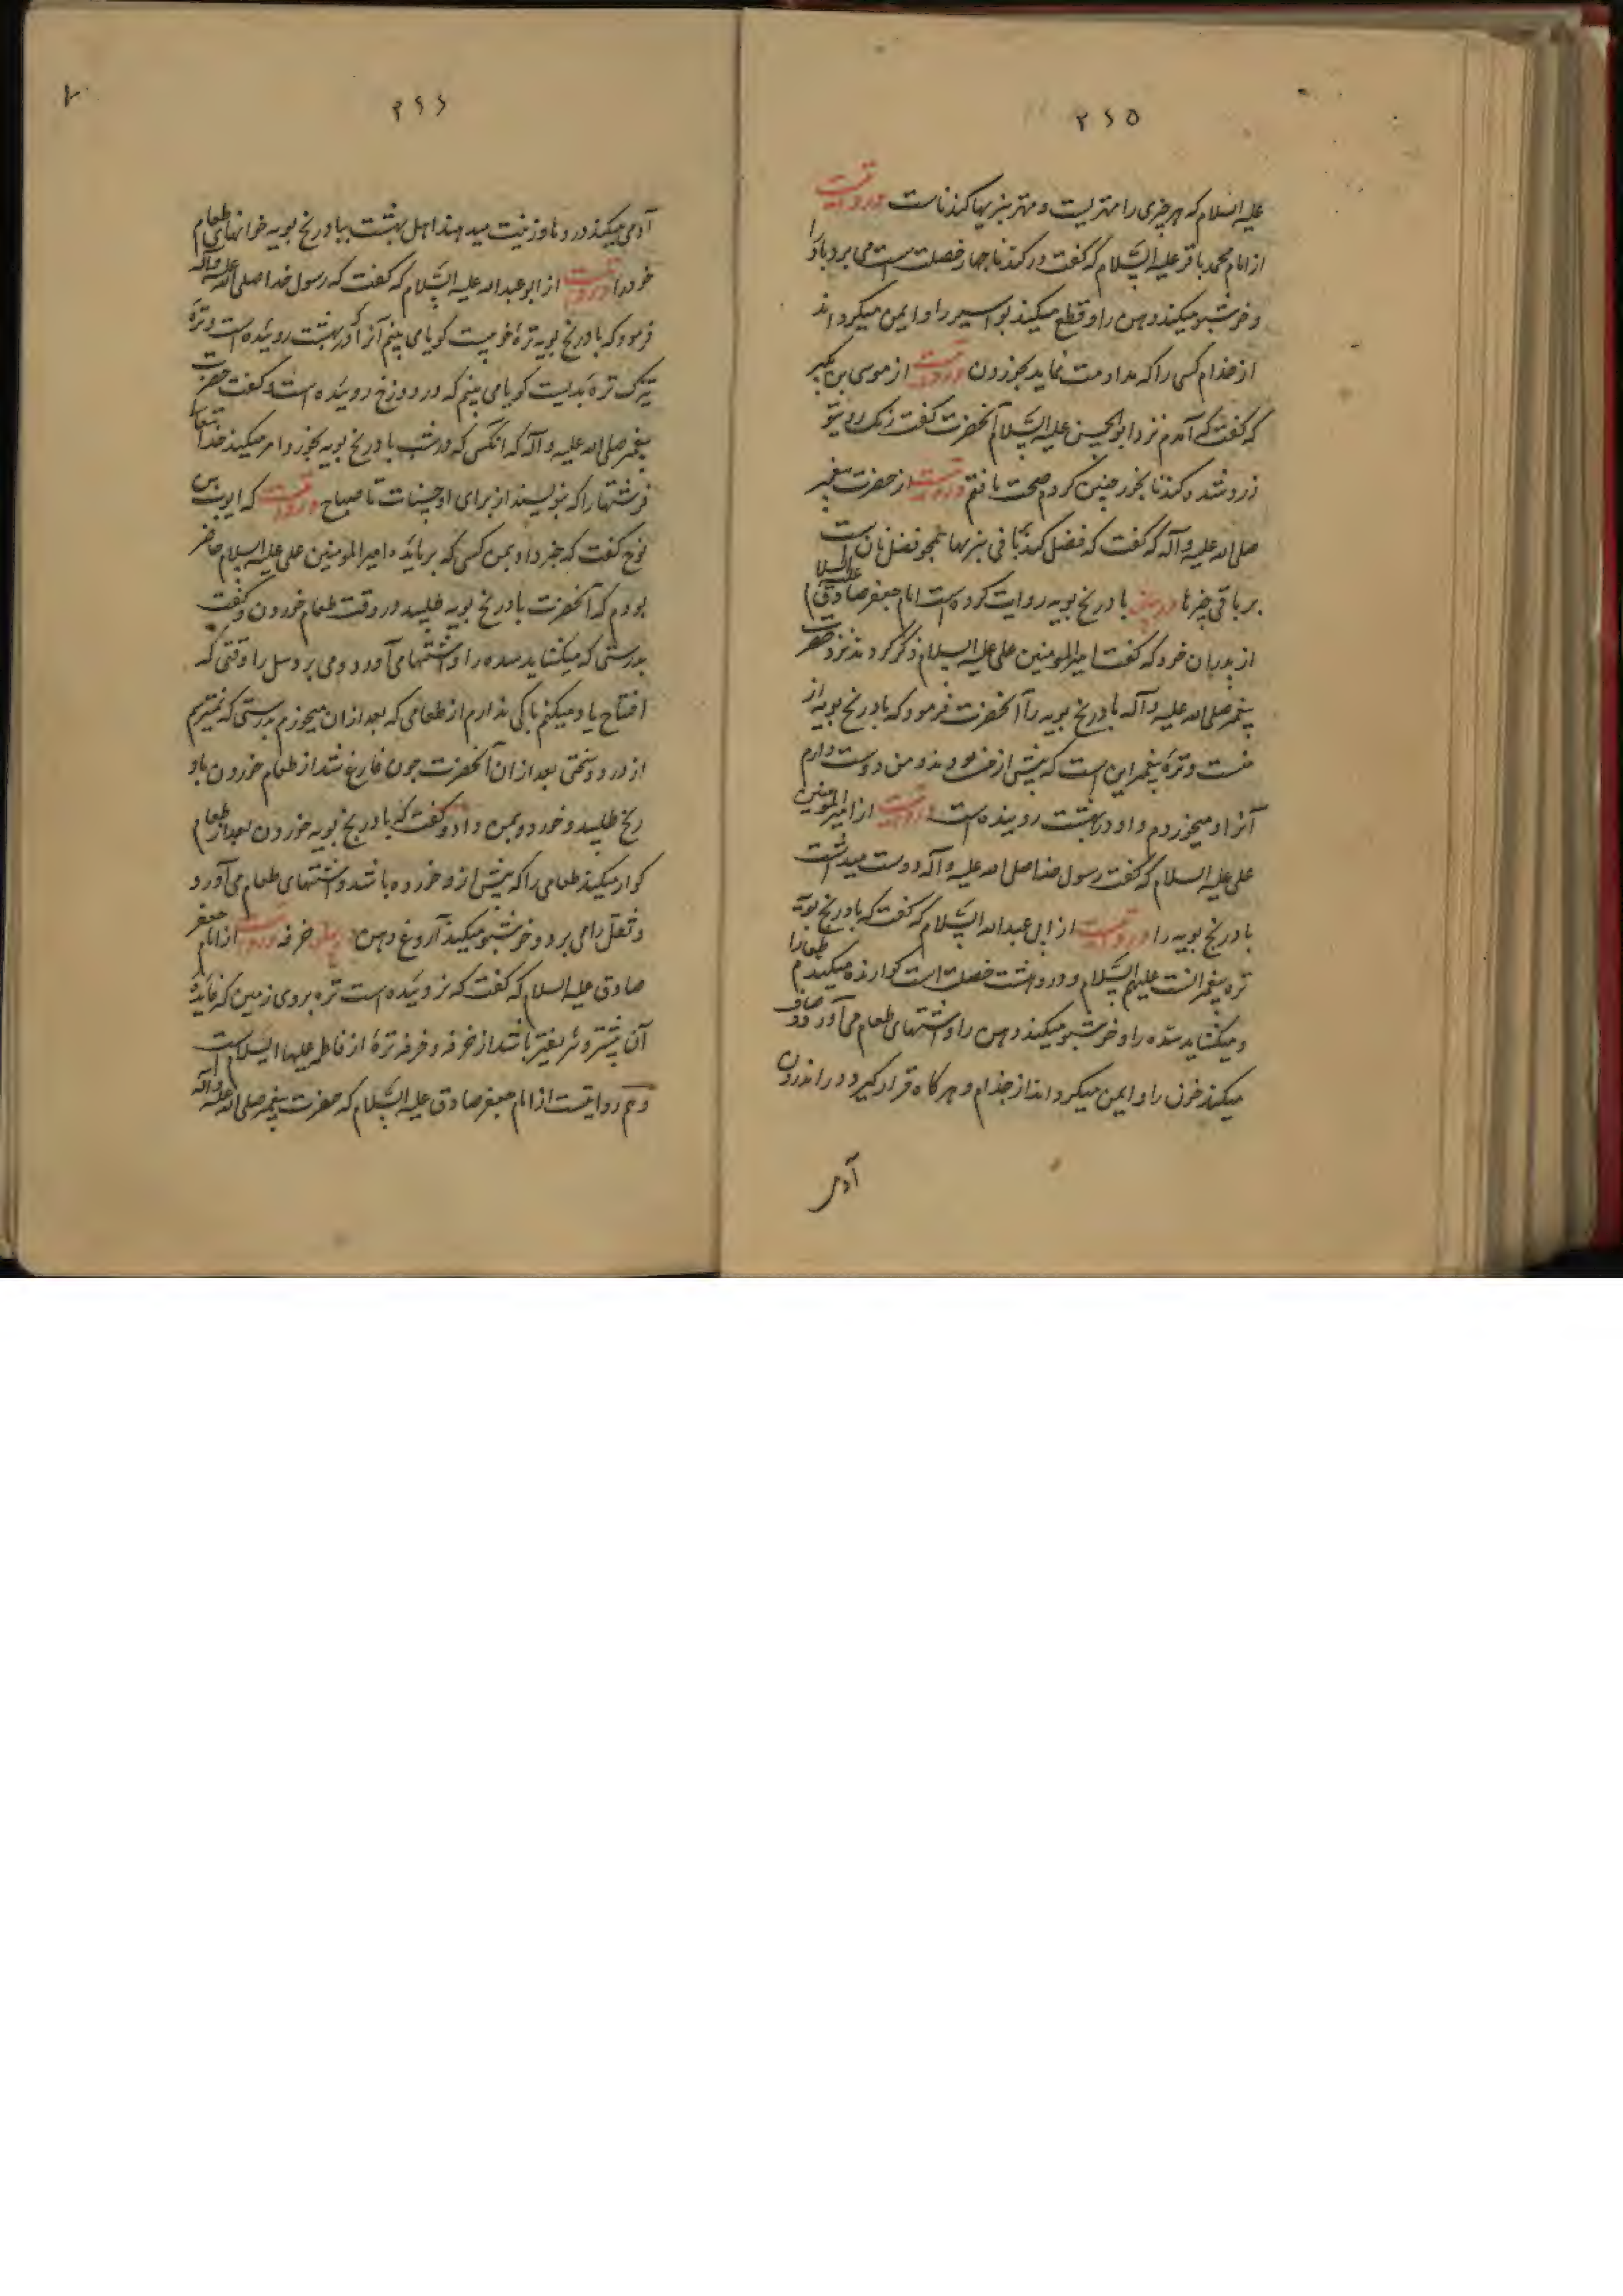 ۲۶۵
علیه السلام که هر چیزی را مهتریست و مهتر سبزیها کندناست و روایتست
از امام محمد باقر علیه السّلام که گفت در کندنا چهار خصلت است می برد بادرا
و خوشبو میکند دهن را و قطع میکند بواسیر را و ایمن میکرداند
از جذام کسی را که مداومت نماید بخوردن و روایتست از موسی بن بکیر
که گفت که آمدم نزد ابوالحسن علیه السّلام آنحضرت گفت رنک روی تو
زرد شد و کندنا بخور چنین کردم صحت یافتم و روایتست از حضرت پیغمبر
صلی الله علیه و آله که گفت که فضل کندنا بر باقی سبزیها همچو فضل نان است
بر باقی چیزها در بیان بادرنج بویه روایت کرده است امام جعفر صادق علیه السلام
از پدران خود که گفت امیرالمومنین علی علیه السلام ذکر کردند نزد حضرت
پیغمبر صلی الله علیه و آله بادرنج بویه را آنحضرت فرمود که بادرنج بویه از
منست و ترهٔ پیغمبر این است که پیش از من بودند و من دوست دارم
آنرا و میخورم و او در بهشت روینده است و روایتست از امیرالمومنین
علی علیه السلام که گفت رسول خدا صلی الله علیه و آله دوست میداشت
بادرنج بویه را و روایتست از ابی عبدالله السّلام که گفت که بادرنج بویه
تره پیغمبرانست علیهم السّلام و درو هشت خصلت است کوارنده میکند طعام را
و میکشاید سده را و خوشبو میکند دهن را و اشتهای طعام می آورد و صاف
میکند خون را و ایمن میکرداند از جذام و هرکاه قرار کیرد در اندرون
آدمی
۲۶۶
آدمی میکند دردها و زینت میدهند اهل بهشت ببادرنج بویه خوانهای طعام
خود را و روایتست از ابوعبدالله علیه السّلام که گفت که رسول خدا صلی الله علیه و آله
فرمود که بادرنج بویه ترهٔ خوبیست کویا می بینم آنرا که در بهشت روئیده است و ترهٔ
تیزک ترهٔ بدیست کویا می بینم که در دوزخ روئیده است و گفت حضرت
پیغمبر صلی الله علیه و آله که انکس که در شب بادرنج بویه بخورد امر میکند خدا تعالی
فرشتها را که بنویسند از برای او حسنات تا صباح و روایتست که ایوب بن
نوح گفت که خبر داد بمن کسی که بر مایده امیرالمومنین علی علیه السلام حاضر
بودم که آنحضرت بادرنج بویه طلبید در وقت طعام خوردن و گفت
بدرستی که میکشاید سده را و اشتها می آورد و می برد سل را وقتی که
افتتاح یاد میکنم باکی ندارم از طعامی که بعد از ان میخورم بدرستی که نمیترسم
از درد و سختی بعد از ان آنحضرت چون فارغ شد از طعام خوردن باد
رنج طلبید و خورد و بمن داد و گفت که بادرنج بویه خوردن بعد از طعام
کوار میکند طعامی را که پیش از و خورده باشد و اشتهای طعام می آورد
و ثقل را می برد و خوشبو میکند آروغ دهن در بیان خرفه و روایتست از امام جعفر
صادق علیه السلام که گفت که نروئیده است تره بر روی زمین که فایده
آن بیشتر و شریفتر باشد از خرفه و خرفه ترهٔ از فاطمه علیها السلام است
و هم روایتست از امام جعفر صادق علیه السّلام که حضرت پیغمبر صلی الله علیه و آله